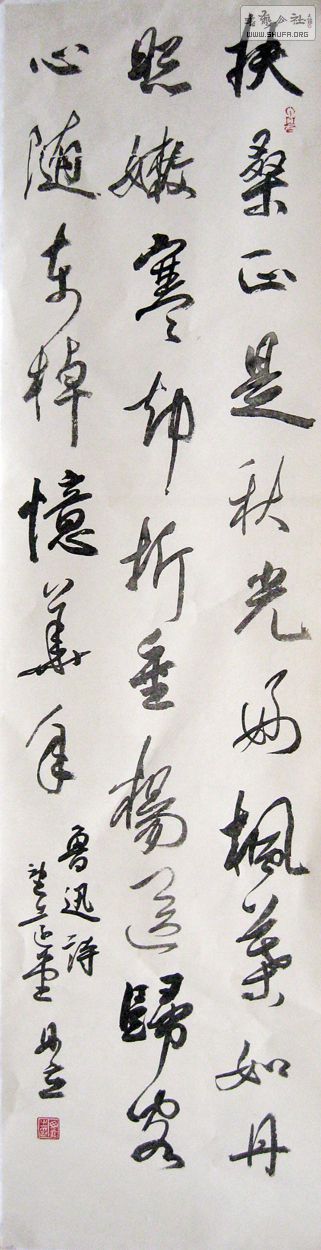 書藝公社
WWW.SHUFA.ORG
扶桑正是秋光好楓葉如丹
照嫩寒却折垂楊送歸客
心随東棹憶華年
魯迅詩